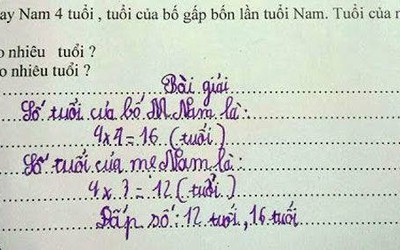 ay Nam 4 tuổi , tuổi của bố gấp bốn lần tuổi Nam. Tuổi của
o nhiêu tuổi ?
o nhiêu tuổi ?
Bài giải
Số tuổi của bố Nam là:
4x4=16 (tuổi)
Số tuổi của mẹ Nam là:
4x3=12 (tuổi)
Đáp số: 12 tuổi, 16 tuổi